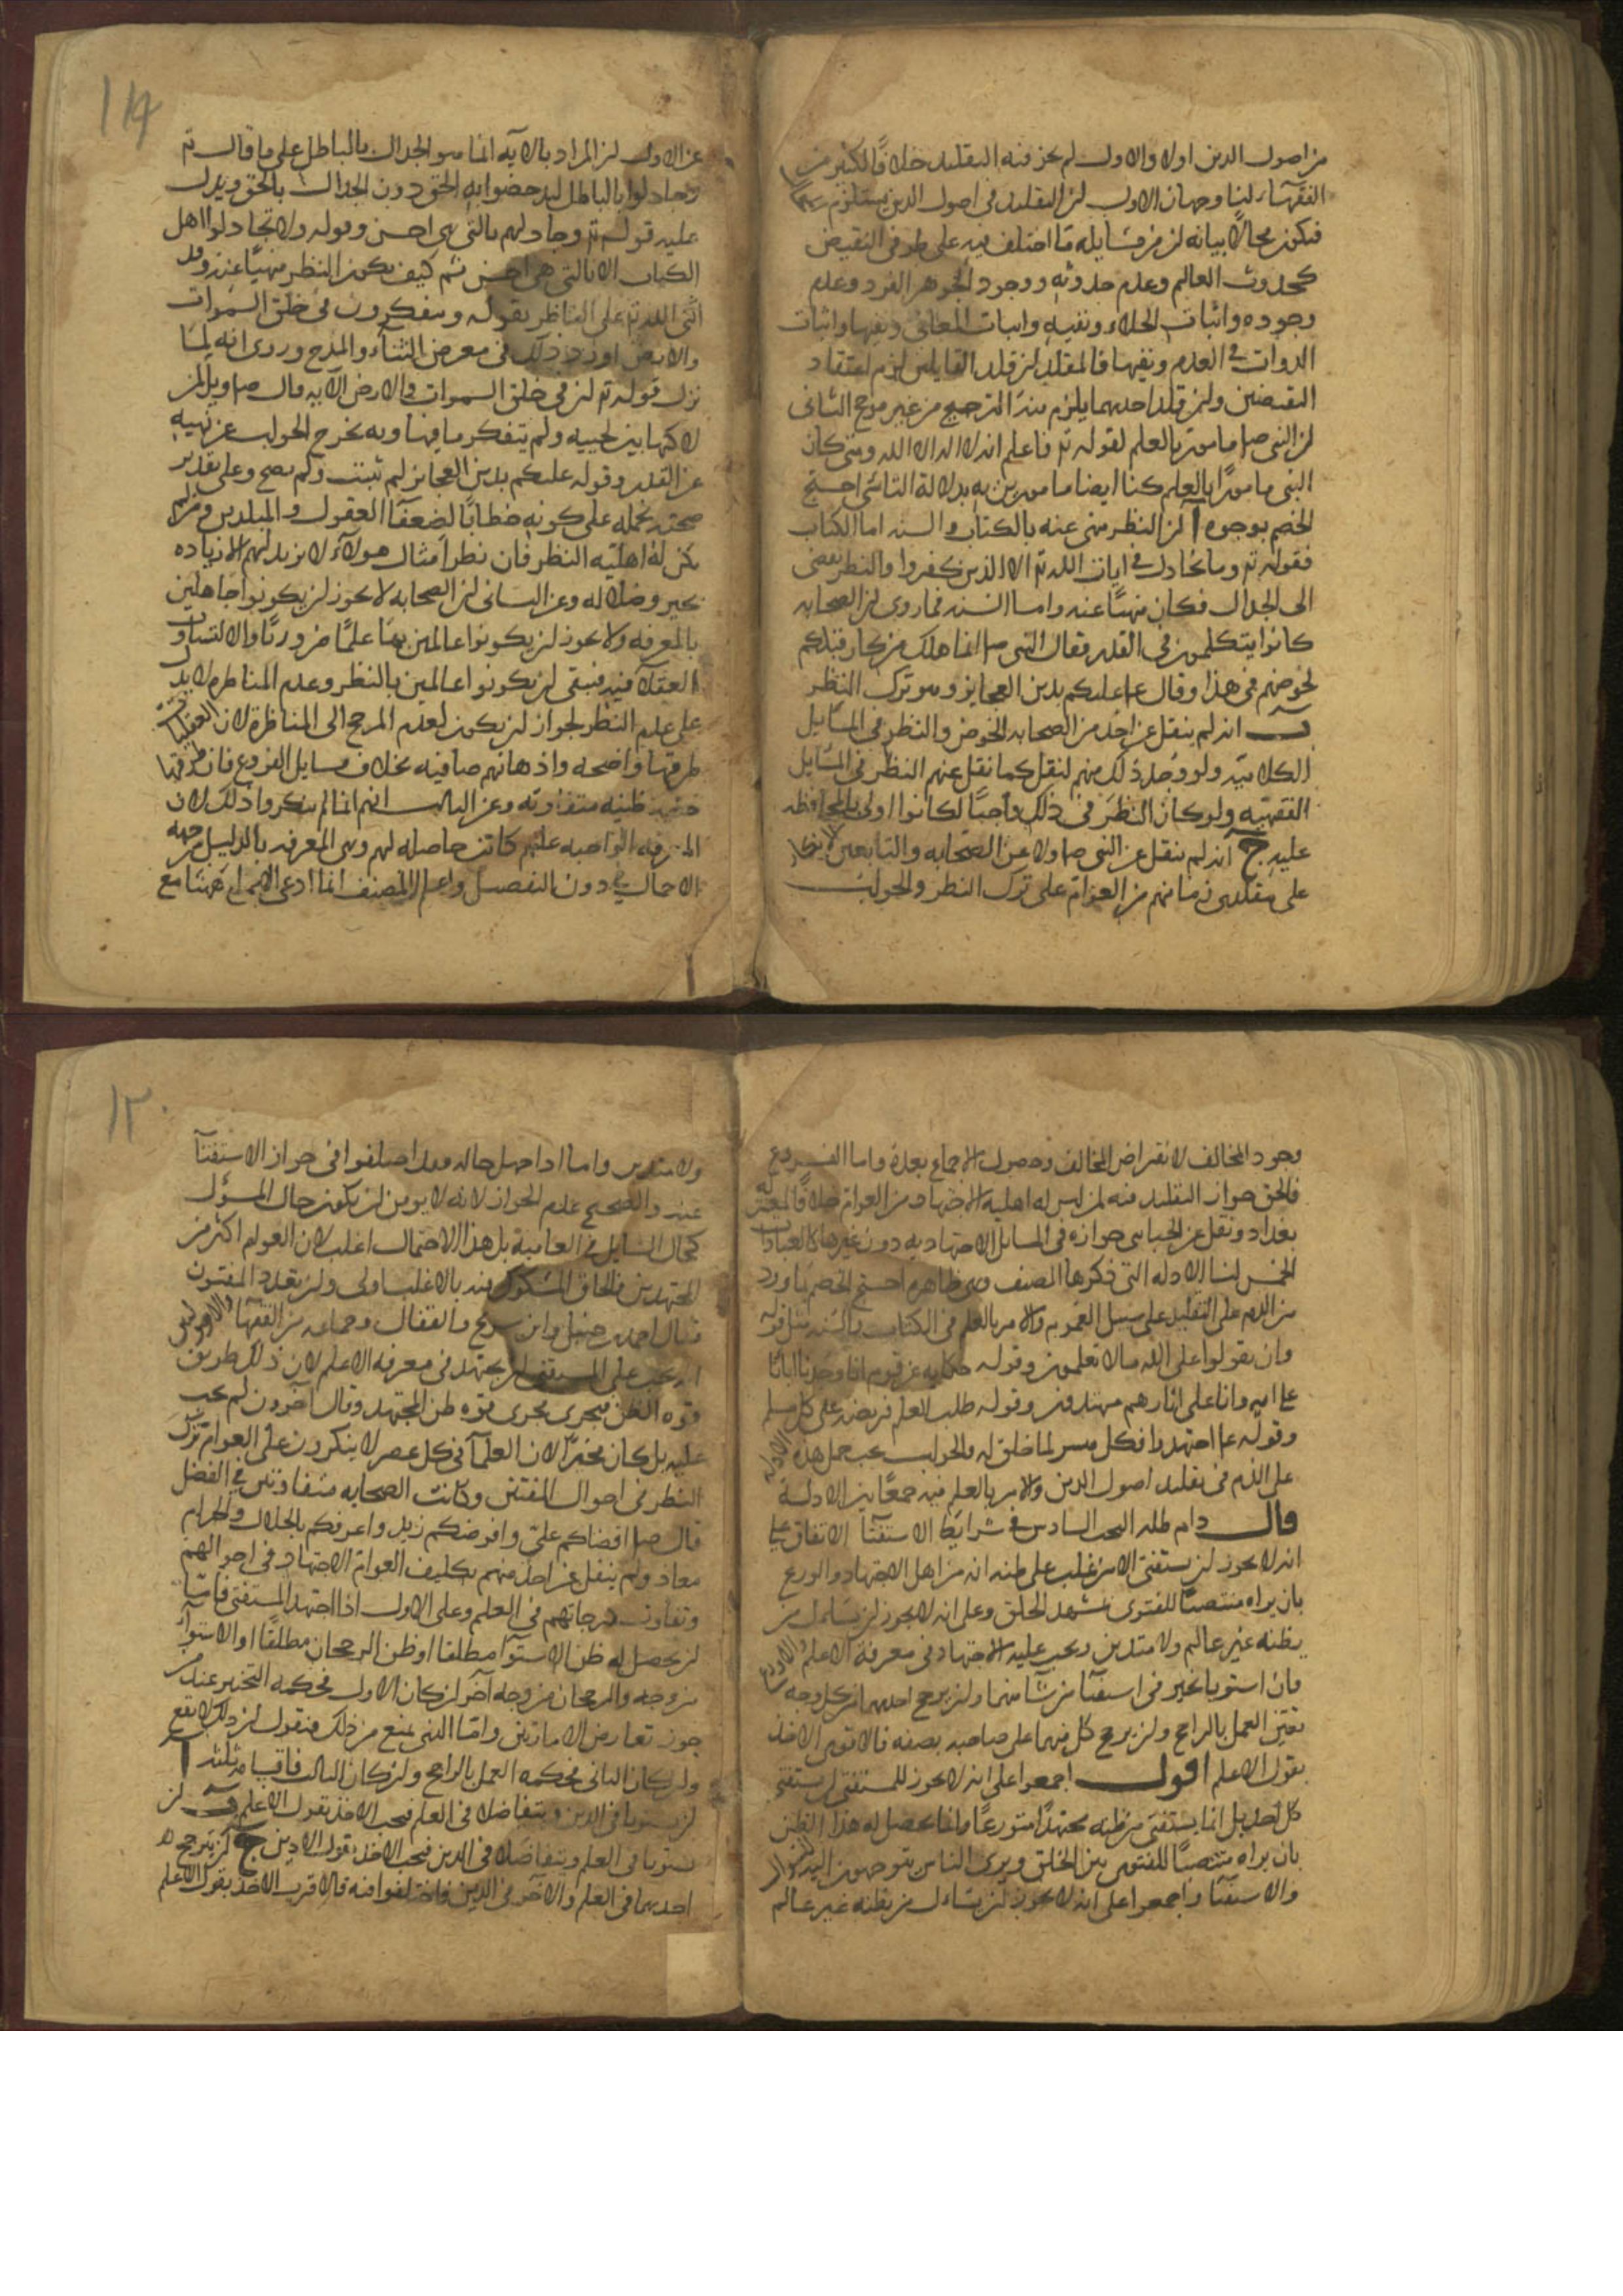 من اصول الدين اولا والاول لم يجز فيه التقليد خلافًا لكثير من
الفقهاء لنا وجهان الاول ان التقليد في اصول الدين يستلزم
فيكون محالا بيانه ان من مسايله ما اختلف فيه على طرفي النقيض
كحدوث العالم وعدم حدوثه ووجود الجوهر الفرد وعدم
وجوده واثبات الخلاء ونفيه واثبات المعاني ونفيها واثبات
الذوات في العدم ونفيها فالمقلد ان قلد القايلين لزم اعتقاد
النقيضين وان قلد احدهما يلزم منه الترجيح من غير مرجح الثاني
ان النبي ص مامور بالعلم لقوله تع فاعلم انه لا اله الا الله ومتى كان
النبي مامورًا بالعلم كنا ايضا مامورين به بدلالة التاسي احتج
الخصم بوجوه آ ان النظر منهى عنه بالكتاب والسنه اما الكتاب
فقوله تع وما يجادل في ايات الله تع الا الذين كفروا والنظر يفضي
الى الجدال فكان منهيًا عنه واما السنه فما روى ان الصحابه
كانوا يتكلمون في القدر فقال النبي ص انما هلك من كان قبلكم
لخوضهم في هذا وقال ع عليكم بدين العجايز وهو ترك النظر
ب انه لم ينقل عن احد من الصحابه الخوض والنظر في المسايل
الكلاميه ولو وجد ذلك منهم لنقل كما نقل عنهم النظر في المسايل
الفقهيه ولو كان النظر في ذلك واجبًا لكانوا اولى بالمحافظه
عليه ج انه لم ينقل عن النبي ص ولا عن الصحابه والتابعين الانكار
على مقلدي زمانهم من العوام على ترك النظر والجواب
عن الاول ان المراد بالايه انما هو الجدال بالباطل على ما قال تع
وجادلوا بالباطل ليدحضوا به الحق دون الجدال بالحق ويدل
عليه قوله تع وجادلهم بالتي هي احسن وقوله ولا تجادلوا اهل
الكتاب الا بالتي هي احسن ثم كيف يكون النظر منهيًا عنه وقد
اثنى الله تع على الناظر بقوله ويتفكرون في خلق السموات
والارض اورد ذلك في معرض الثناء والمدح وروى انه لما
نزل قوله تع ان في خلق السموات والارض الآيه قال ص ويل لمن
لاكها بين لحييه ولم يتفكر ما فيها وبه يخرج الجواب عن نهيه
عن القدر وقوله عليكم بدين العجايز لم يثبت ولم يصح وعلى تقدير
صحته نحمله على كونه خطابًا لضعفآ العقول والمبلدين ومن لم
يكن له اهلية النظر فان نظر امثال هولآء لا يزيدلهم الا زياده
تحير وضلاله وعن الثاني ان الصحابه لا يجوز ان يكونوا جاهلين
بالمعرفه ولا يجوز ان يكونوا عالمين بها علمًا ضروريًا والا لتساوى
العقلآ فيه فبقى ان يكونوا عالمين بالنظر وعدم المناظره لا يدل
على عدم النظر لجواز ان يكون لعدم المرجح الى المناظرة لان العقليات
طرقها واضحه واذهانهم صافيه بخلاف مسايل الفروع فان طرقها
ظنيه متفاوته وعن الثالث انهم انما لم ينكروا ذلك لان
المعرفه الواجبه عليهم كانت حاصله لهم وهي المعرفه بالدليل من جهه
الاجمال دون التفصيل واعلم ان المصنف انما ادعى الاجماع هنا مع
وجود المخالف لانقراض المخالف وحصول الاجماع بعده واما الفروع
فالحق جواز التقليد فيه لمن ليس له اهلية الاجتهاد من العوام خلافًا لمعتزلة
بغداد ونقل عن الجبائي جوازه في المسايل الاجتهاديه دون غيرها كالعبادات
الخمس لنا الادله التي ذكرها المصنف وهي ظاهره احتج الخصم بما ورد
من الذم على التقليد على سبيل العموم والامر بالعلم في الكتاب والسنه مثل قوله
وان تقولوا على الله ما لا تعلمون وقوله حكايه عن قوم انا وجدنا اباءنا
على امه وانا على اثارهم مهتدون وقوله طلب العلم فريضه على كل مسلم
وقوله ع اجتهدوا فكل ميسر لما خلق له والجواب يجب حمل هذه الادله
على الذم في تقليد اصول الدين والامر بالعلم فيه جمعًا بين الادلة
قال دام ظله البحث السادس في شرائط الاستفتآ الاتفاق على
انه لا يجوز ان يستفتى الا من غلب على ظنه انه من اهل الاجتهاد والورع
بان يراه منتصبًا للفتوى بمشهد الخلق وعلى انه لا يجوز ان يسئل من
يظنه غير عالم ولا متدين ويجب عليه الاجتهاد في معرفة الاعلم والاورع
فان استويا تخير في استفتآ من شآ منهما وان يرجح احدهما من كل وجه
تعين العمل بالراجح وان يرجح كل منهما على صاحبه بصفه فالاقوى الاخذ
بقول الاعلم اقول اجمعوا على انه لا يجوز للمستفتي ان يستفتى
كل احد بل انما يستفتى من ظنه مجتهدًا متورعًا وانما يحصل له هذا الظن
بان يراه منتصبًا للفتوى بين الخلق ويرى الناس متوجهون اليه
والاستفتآ واجمعوا على انه لا يجوز ان يساءل من يظنه غير عالم
ولا متدين واما اذا جهل حاله فقد اختلفوا في جواز الاستفتآ
عنه والصحيح عدم الجواز لانه لا يومن ان يكون حال المسؤل
كحال السايل في العاميه بل هذا الاحتمال اغلب لان العوام اكثر من
المجتهدين فالحاق المشكوك فيه بالاغلب اولى وان تعدد المفتون
فقال احمد بن حنبل وابن سريج والقفال وجماعه من الفقهآ والاصوليين
انه يجب على المستفتى ان يجتهد في معرفه الاعلم لان ذلك طريق
قوه الظن فيجرى مجرى قوه ظن المجتهد وقال آخرون لم يجب
عليه بل كان مخيرًا لان العلمآ في كل عصر لا ينكرون على العوام ترك
النظر في احوال المفتين وكانت الصحابه متفاوتين في الفضل
قال ص اقضاكم علي وافرضكم زيد واعرفكم بالحلال والحرام
معاذ ولم ينقل عن احد منهم تكليف العوام الاجتهاد في احوالهم
وتفاوت درجاتهم في العلم وعلى الاول اذا اجتهد المستفتي فاما
ان يحصل له ظن الاستوآ مطلقا او ظن الرجحان مطلقًا او الاستوآ
من وجه والرجحان من وجه آخر ان كان الاول فحكمه التخير عند من
جوز تعارض الامارتين واما الذي يمنع من ذلك فيقول ان ذلك لا يقع
وان كان الثاني فحكمه العمل بالراجح وان كان الثالث فاقسامه ثلثه آ
ان يستويا في الدين ويتفاضلا في العلم فيجب الاخذ بقول الاعلم ب ان
يستويا في العلم ويتفاضلا في الدين فيجب الاخذ بقول الادين ج ان يترجح
احدهما في العلم والآخر في الدين فاختلفوا فيه فالاقرب الاخذ بقول الاعلم